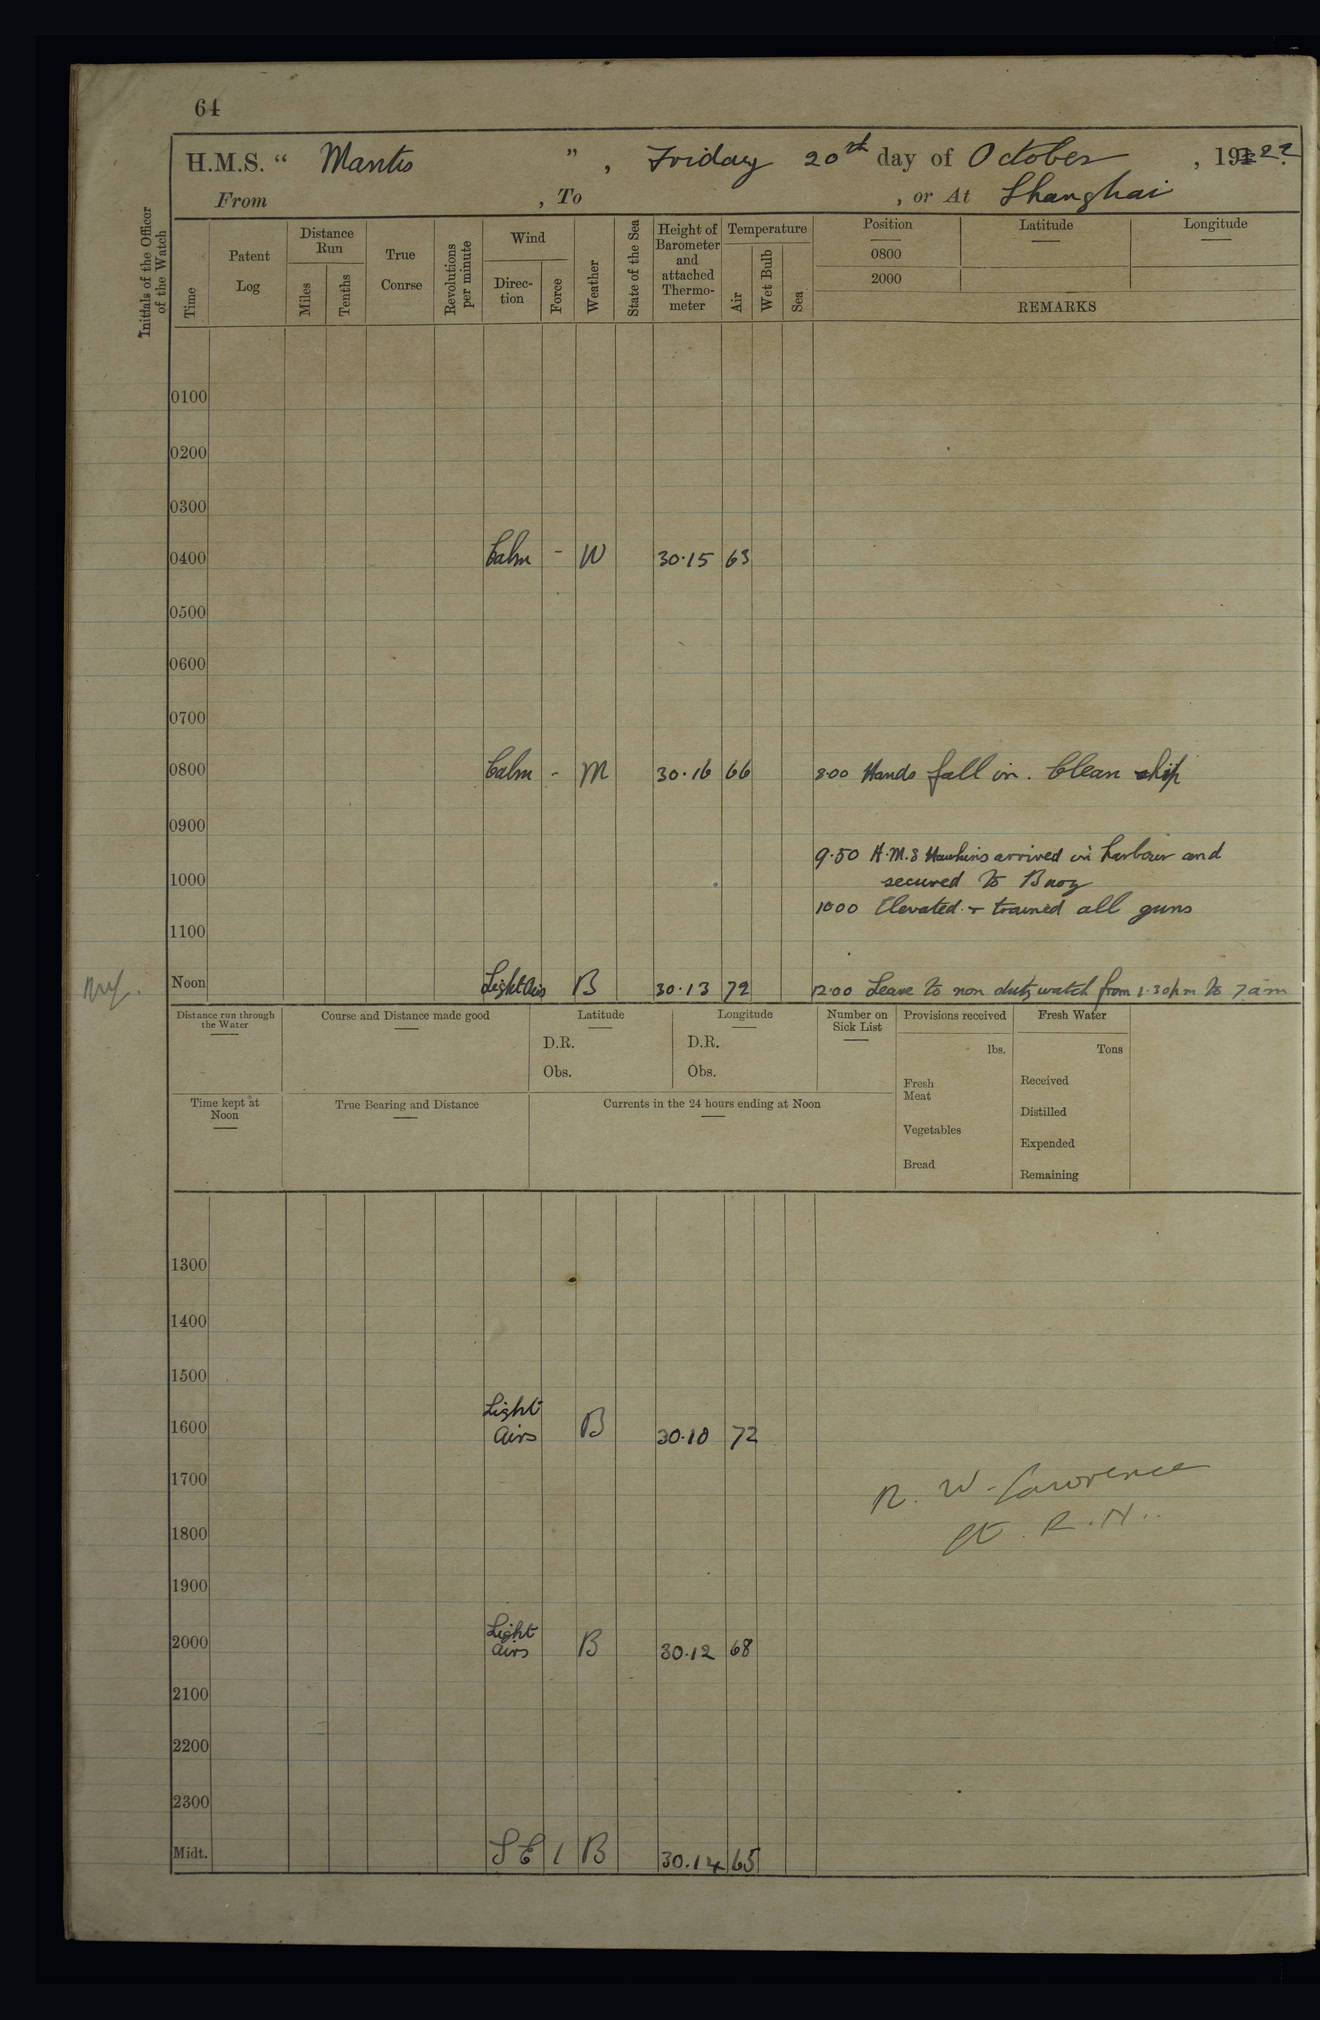 64
H.M.S. “ Mantis ” , Friday 20th day of October , 1922.
From , To , or At Shanghai
Initials of the Officer of the Watch
Time
Patent Log
Distance Run
Miles
Tenths
True Course
Revolutions per minute
Wind
Direc-tion
Force
Weather
State of the Sea
Height of Barometer and attached Thermo-meter
Temperature
Air
Wet Bulb
Sea
Position
Latitude
Longitude
0800
2000
REMARKS
0100
0200
0300
0400 Calm - W 30.15 63
0500
0600
0700
0800 Calm - M 30.16 66 8.00 Hands fall in. Clean ship
0900
9.50 H.M.S Hawkins arrived in harbour and
1000 secured to Buoy
10.00 Elevated & trained all guns
1100
Noon Light Airs B 30.13 72 12.00 Leave to non duty watch from 1.30pm to 7am
Distance run through the Water
Course and Distance made good
Latitude
D.R.
Obs.
Longitude
D.R.
Obs.
Number on Sick List
Provisions received
lbs.
Fresh Meat
Vegetables
Bread
Fresh Water
Tons
Received
Distilled
Expended
Remaining
Time kept at Noon
True Bearing and Distance
Currents in the 24 hours ending at Noon
1300
1400
1500
1600 Light Airs B 30.10 72
1700
R. W. Lawrence
Lt. R.N.
1800
1900
2000 Light Airs B 30.12 68
2100
2200
2300
Midt. S E 1 B 30.14 65